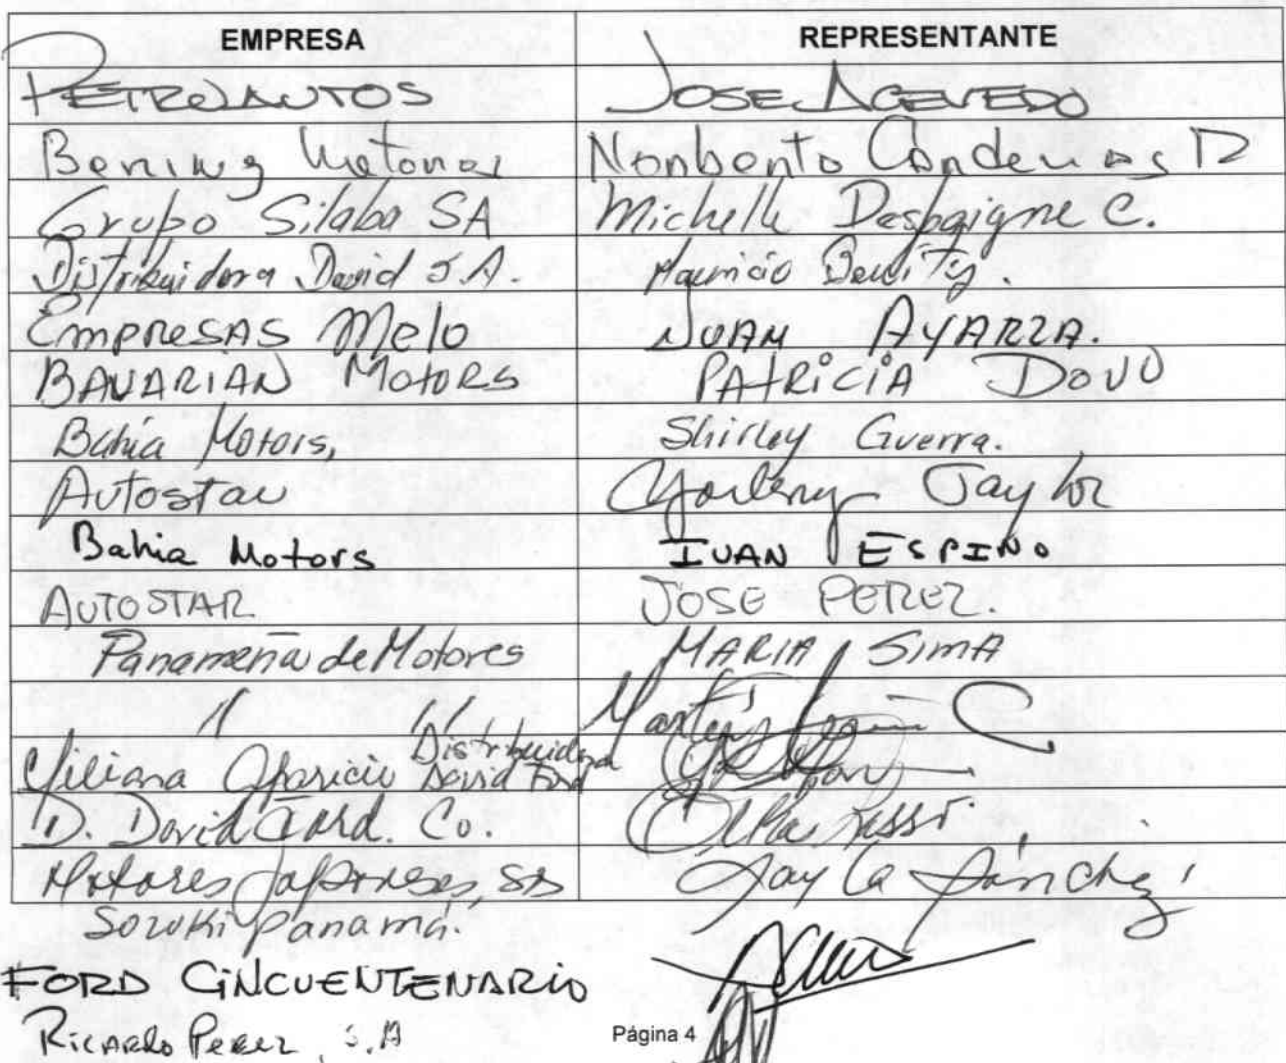 EMPRESA REPRESENTANTE
PETROAUTOS JOSE ACEVEDO
Bening Motores Norberto Cardenas D
Grupo Silaba SA Michelle Despaigne C.
Distribuidora David S.A. Mauricio Benitez.
Empresas Melo JUAN AYARZA.
BAVARIAN MOTORS PATRICIA DOVO
Bahia Motors, Shirley Guerra.
Autostar Yorleny Taylor
Bahia Motors IVAN ESPINO
AUTOSTAR JOSE PEREZ.
Panameña de Motores MARIA SIMA
" "
Yiliana Aparicio Distribuidora David Ford
D. David Ford. Co.
Motores Japoneses, SA Sánchez
Suzuki Panamá.
FORD CINCUENTENARIO
Ricardo Perez, S.A
Página 4